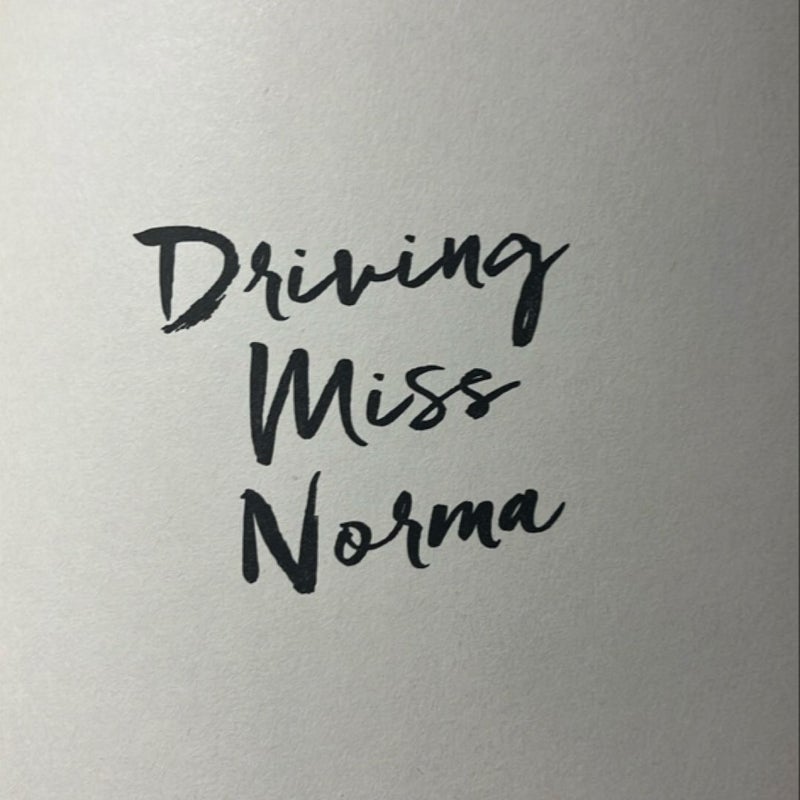 Driving
Miss
Norma